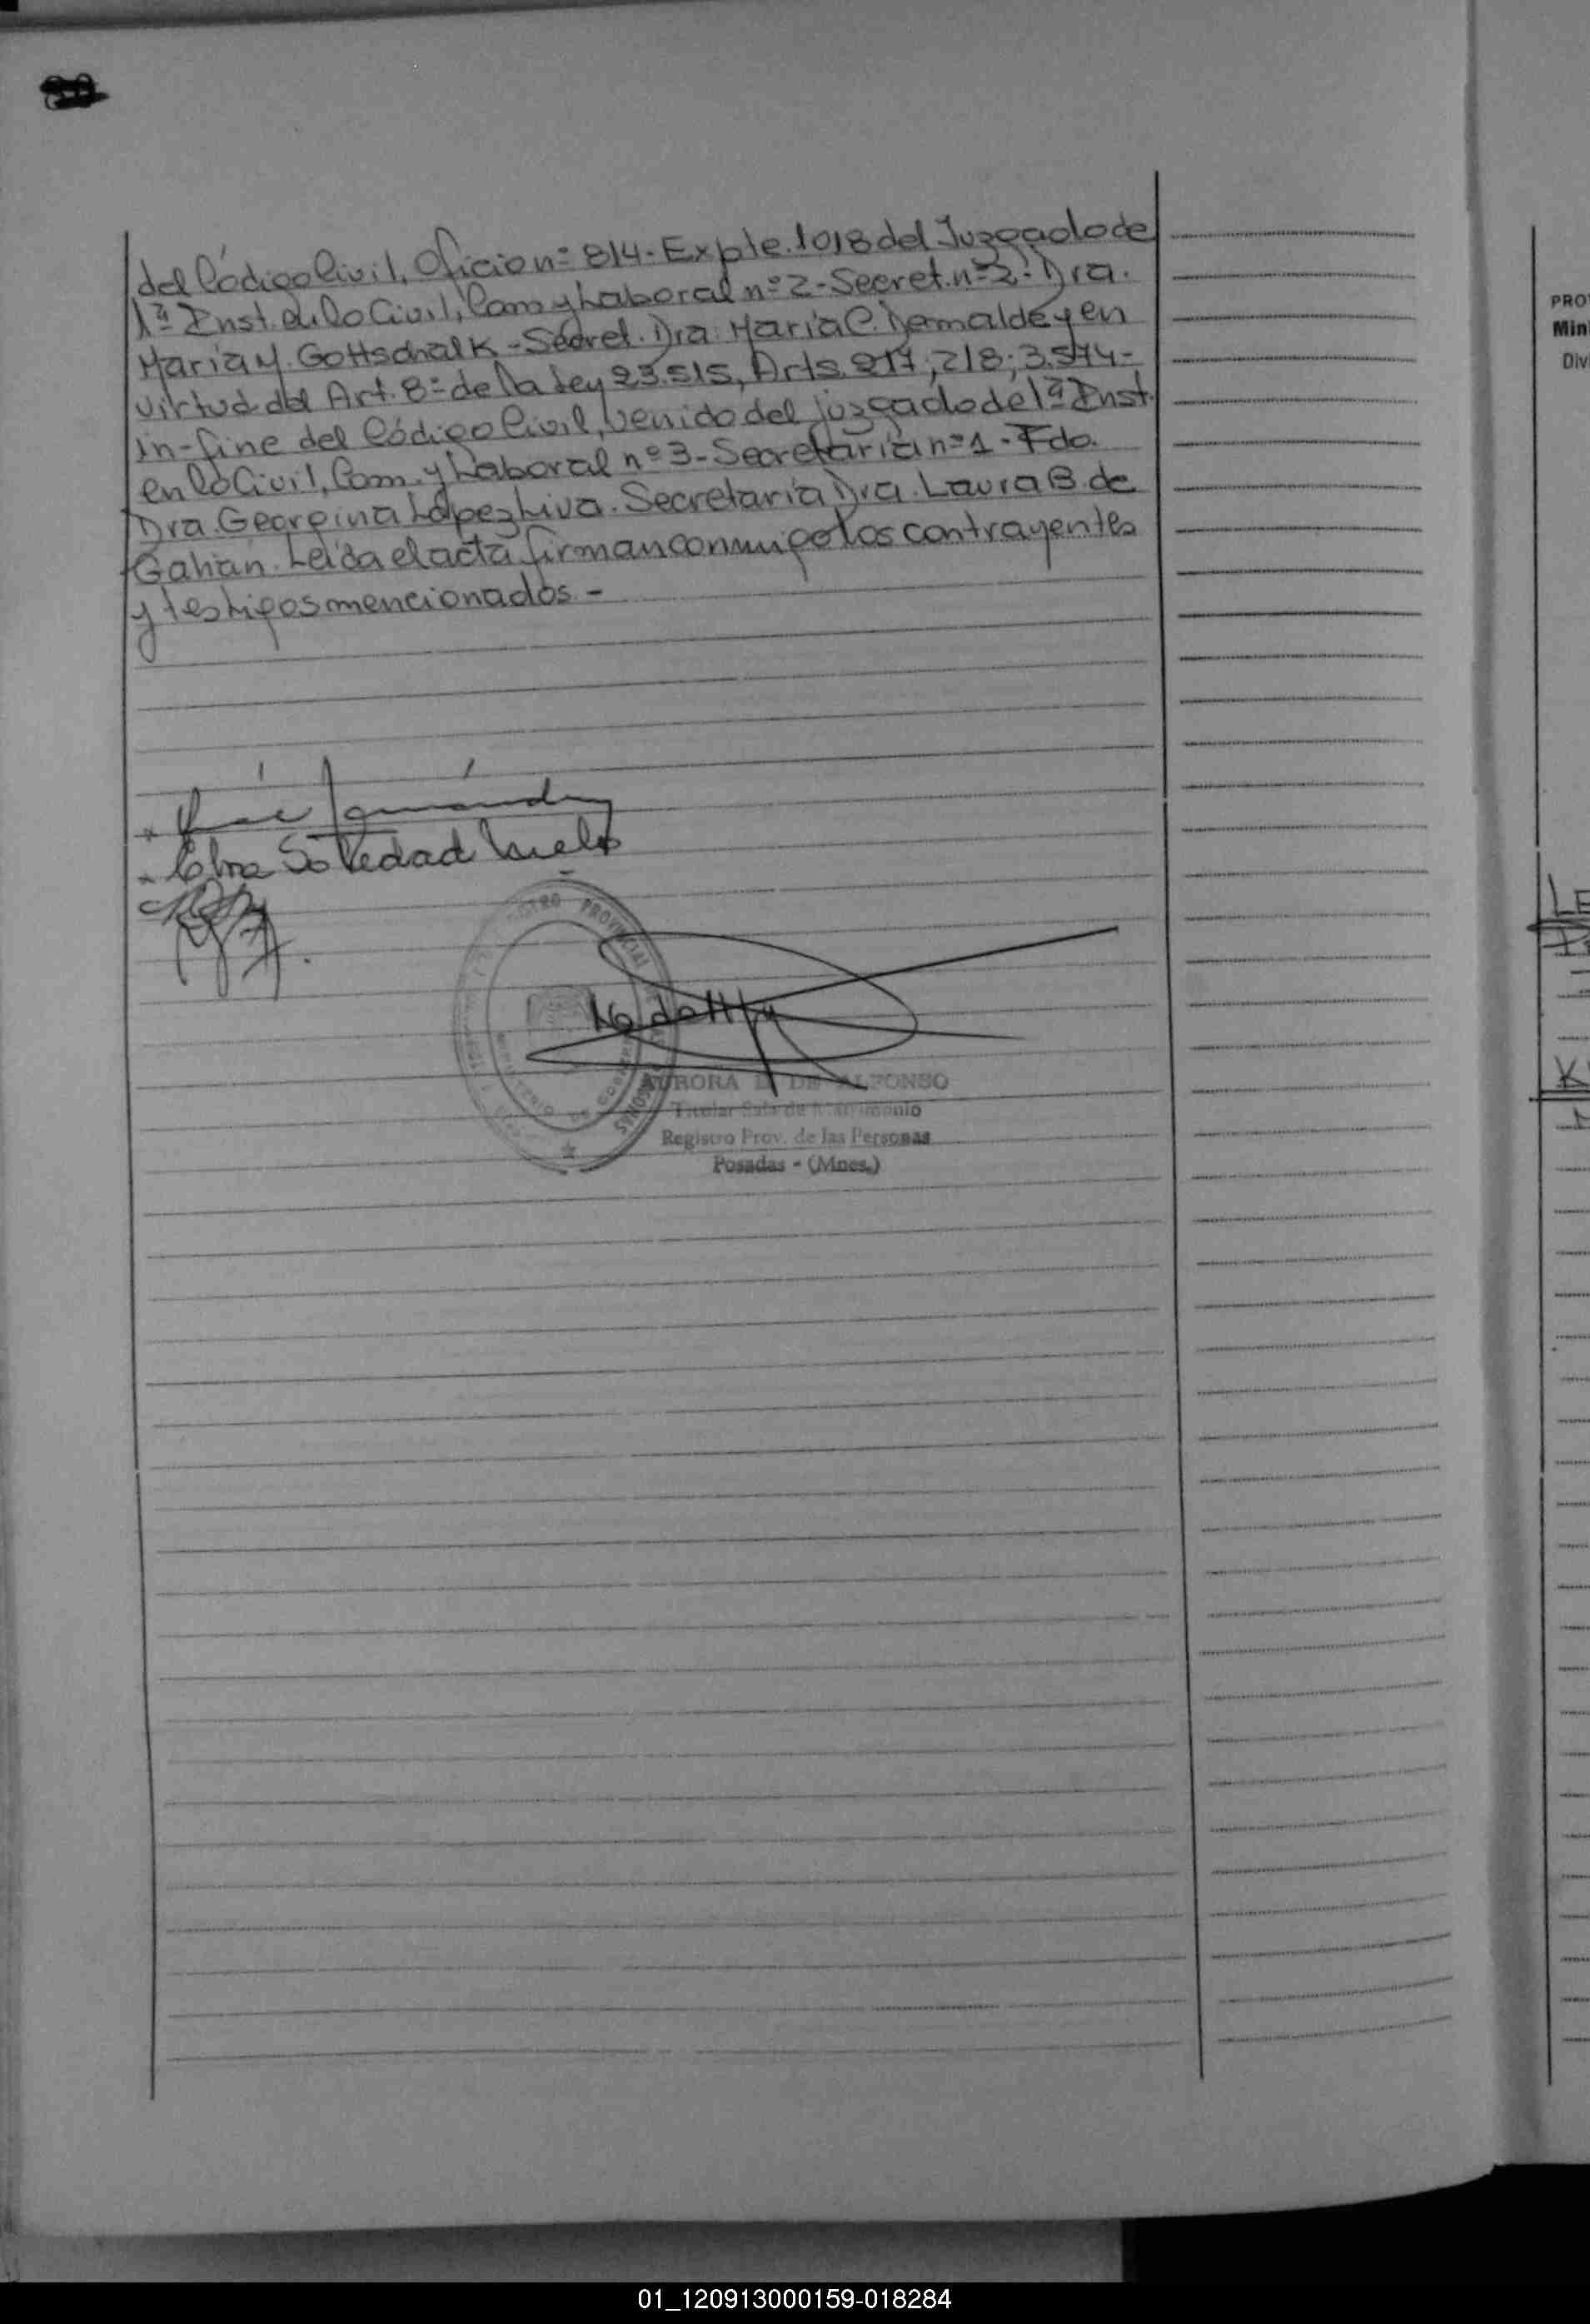 del Código Civil, Oficio nº 814- Expte. 1018 del Juzgado de
1ª Inst. en lo Civil, Com y Laboral nº 2- Secret. nº 2- Dra.
María M. Gottschalk - Secret. Dra. María C. Demalde y en
virtud del Art. 8º de la Ley 23.515, Arts. 217; 218; 3.574-
in-fine del Código Civil, venido del juzgado de 1ª Inst.
en lo Civil, Com. y Laboral nº 3- Secretaria nº 1- Fdo.
Dra. Georgina López Liva. Secretaría Dra. Laura B. de
Gahan. Leída el acta firman conmigo los contrayentes
y testigos mencionados. -
Soledad
REGISTRO PROVINCIAL DE LAS PERSONAS
MINISTERIO DE GOBIERNO
AURORA DE ALFONSO
Titular Sala de Matrimonio
Registro Prov. de las Personas
Posadas - (Mnes.)
PRO
Min
Div
LE
K
01_120913000159-018284